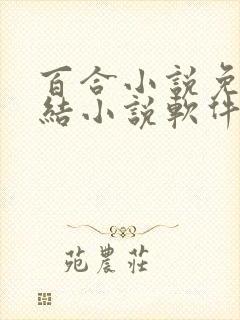 百合小說免
結小說軟件
苑農莊